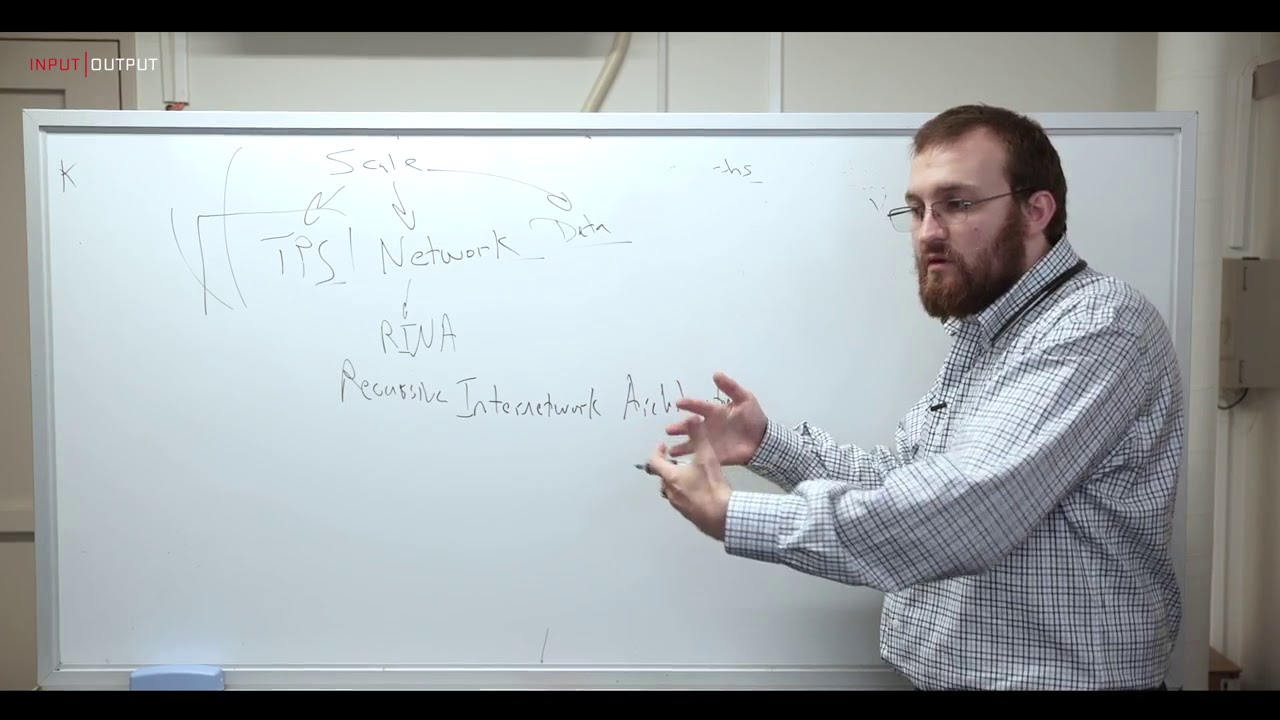 INPUT|OUTPUT
K
Scale
-hs
TPS | Network Data
RINA
Recursive Internetwork